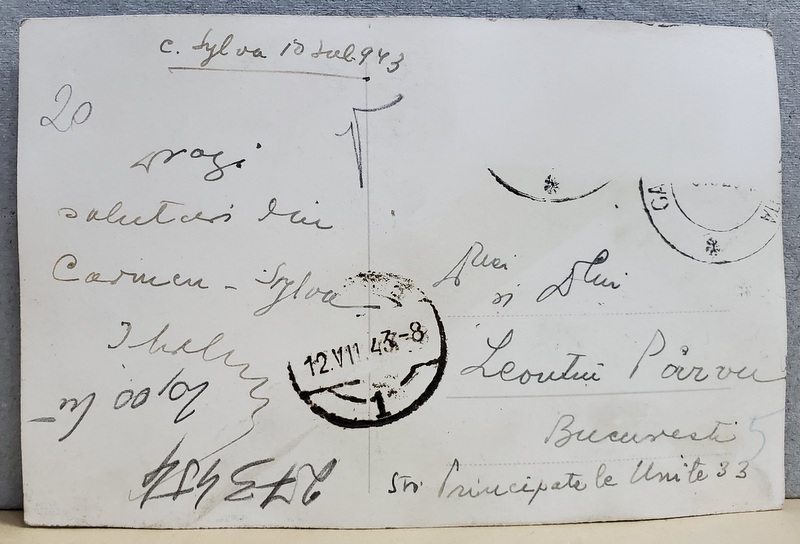 C. Sylva 10 Iul. 943
20
Dragi
salutări din
Carmen - Sylva
10,00 lei
273454
12.VII.43.-8
1
GA
Dnei
și Dlui
Leontin Pârvu
București 5
Str. Principatele Unite 33